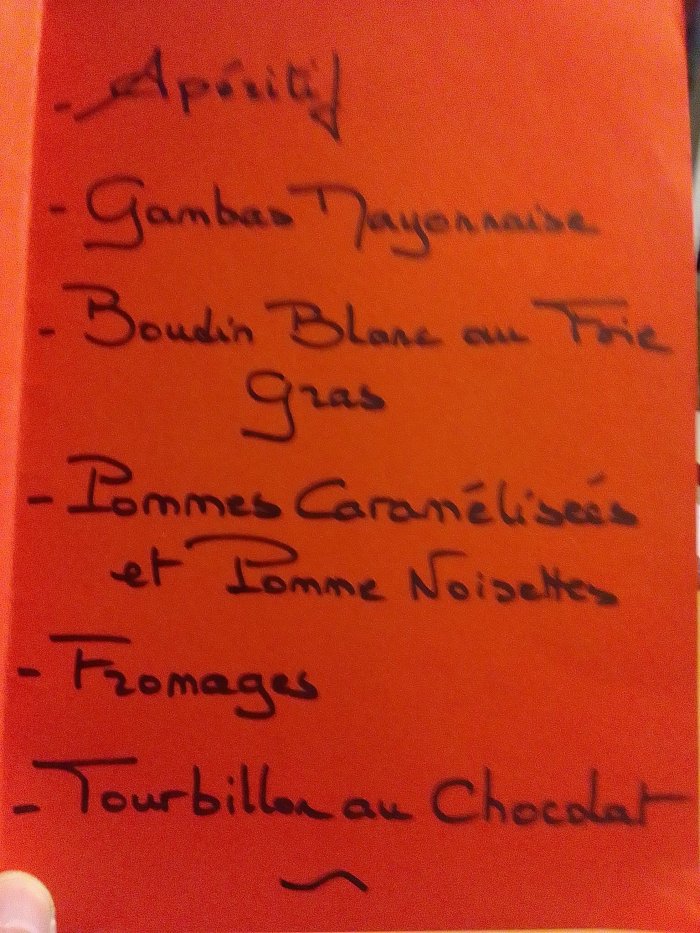 - Apéritif
- Gambas Mayonnaise
- Boudin Blanc au Foie
Gras
- Pommes Caramélisées
et Pomme Noisettes
- Fromages
- Tourbillon au Chocolat